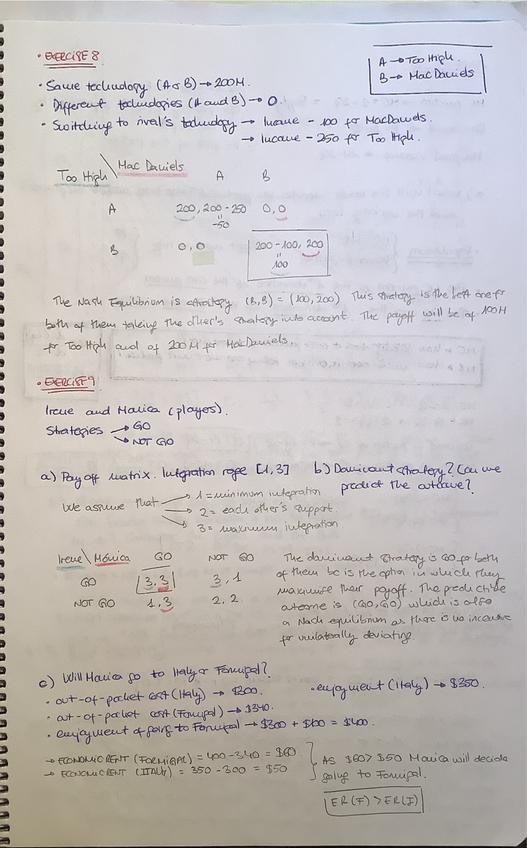 • EXERCISE 8
A → Too High.
B → MacDaniels
• Same technology (A or B) → 200M.
• Different technologies (A and B) → 0.
• Switching to rival's technology → Income - 100 for MacDaniels.
→ Income - 250 for Too High.
Too High \ Mac Daniels A B
A 200, 200-250 0,0
= -50
B 0,0 200-100, 200
= 100
The Nash Equilibrium is strategy (B,B) = (100, 200) This strategy is the best one for
both of them taking the other's strategy into account. The payoff will be of 100M
for Too High and of 200M for MacDaniels.
• EXERCISE 9
Irene and Monica (players).
Strategies → GO
→ NOT GO
a) Pay off matrix. Integration rage [1,3] b) Dominant strategy? Can we
predict the outcome?
We assume that → 1 = minimum integration
→ 2 = each other's support.
→ 3 = maximum integration
Irene \ Mónica GO NOT GO
GO 3,3 3,1
NOT GO 1,3 2,2
The dominant strategy is GO for both
of them bc is the option in which they
maximise their payoff. The predictible
outcome is (GO,GO) which is also
a Nash equilibrium as there is no incentive
for unilaterally deviating.
c) Will Monica go to Italy or Formigal?
• out-of-pocket cost (Italy) → $300. • enjoyment (Italy) → $350.
• out-of-pocket cost (Formigal) → $340.
• enjoyment of going to Formigal → $300 + $100 = $400.
→ ECONOMIC RENT (FORMIGAL) = 400-340 = $60
→ ECONOMIC RENT (ITALY) = 350-300 = $50
As $60 > $50 Monica will decide
going to Formigal.
ER(F) > ER(I)